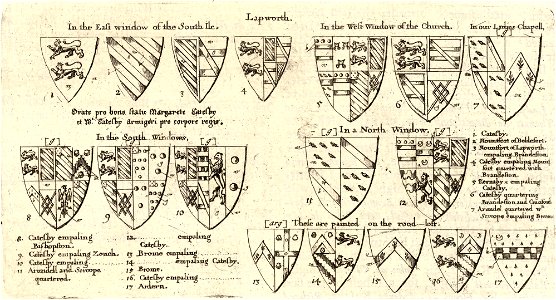 Lapworth.
In the East window of the South Ile.
In the West Window of the Church.
In our Ladyes Chapell,
1 2 3 4 5 6 7
Orate pro bono statu Margarete Catesby
et Wi. Catesby Armigeri pro corpore regis.
In the South Windows,
In a North Window,
1 Catesby.
2 Mountfort of Beldesert.
3 Mountfort of Lapworth
empaling Brandeston.
4 Catesby empaling Mount
fort quartered with
Brandeston.
5 empaling
Catesby.
6 Catesby quartering
Brandeston and
Arundel quartered wth
Scroope empaling
8 9 10 11 12
8 Catesby empaling
Bishopston.
9 Catesby empaling Zouch.
10 Catesby empaling
11 Arundell and Scroope
quartered.
12 empaling
Catesby.
13 Brome empaling
14 empaling Catesby.
15 Brome.
16 Catesby empaling
17 Ardern.
[arg] These are painted on the rood-loft.
13 14 15 16 17